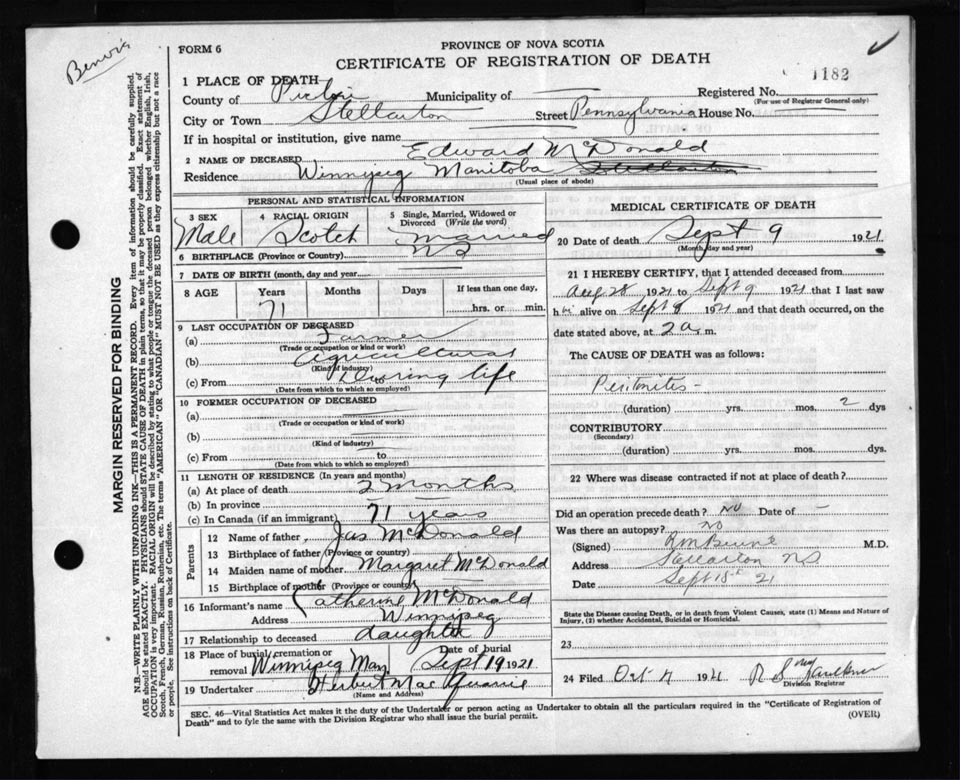 FORM 6
PROVINCE OF NOVA SCOTIA
CERTIFICATE OF REGISTRATION OF DEATH
1182
1 PLACE OF DEATH
County of Pictou Municipality of — Registered No.
(For use of Registrar General only)
City or Town Stellarton Street Pennsylvania House No.
If in hospital or institution, give name
2 NAME OF DECEASED Edward McDonald
Residence Winnipeg Manitoba Stellarton
(Usual place of abode)
PERSONAL AND STATISTICAL INFORMATION
3 SEX Male
4 RACIAL ORIGIN Scotch
5 Single, Married, Widowed or Divorced (Write the word) Married
6 BIRTHPLACE (Province or Country) NS
7 DATE OF BIRTH (month, day and year)
8 AGE Years Months Days If less than one day,
71 hrs. or min.
9 LAST OCCUPATION OF DECEASED
(a)
(Trade or occupation or kind of work)
(b) Agricultural
(Kind of industry)
(c) From During to life
(Date from which to which so employed)
10 FORMER OCCUPATION OF DECEASED
(a) —
(Trade or occupation or kind of work)
(b) —
(Kind of industry)
(c) From — to
(Date from which to which so employed)
11 LENGTH OF RESIDENCE (In years and months)
(a) At place of death 2 months
(b) In province —
(c) In Canada (if an immigrant) 71 years
Parents
12 Name of father Jas McDonald
13 Birthplace of father (Province or country)
14 Maiden name of mother Margaret McDonald
15 Birthplace of mother (Province or country)
16 Informant's name Catherine McDonald
Address Winnipeg
17 Relationship to deceased daughter
18 Place of burial, cremation or removal Winnipeg Man Date of burial Sept 19 1921
19 Undertaker Herbert MacQuarrie
(Name and Address)
MEDICAL CERTIFICATE OF DEATH
20 Date of death Sept 9 1921
(Month, day and year)
21 I HEREBY CERTIFY, that I attended deceased from
Aug 28 1921 to Sept 9 1921 that I last saw
him alive on Sept 9 1921 and that death occurred, on the
date stated above, at 2 a. m.
The CAUSE OF DEATH was as follows:
Peritonites -
(duration) yrs. mos. 2 dys
CONTRIBUTORY
(Secondary)
(duration) yrs. mos. dys.
22 Where was disease contracted if not at place of death?
Did an operation precede death? No Date of -
Was there an autopsy? No
(Signed) M.D.
Address Stellarton NS
Date Sept 21
State the Disease causing Death, or in death from Violent Causes, state (1) Means and Nature of
Injury, (2) whether Accidental, Suicidal or Homicidal.
23
24 Filed Oct 1921 Faulkner
Division Registrar
SEC. 46—Vital Statistics Act makes it the duty of the Undertaker or person acting as Undertaker to obtain all the particulars required in the "Certificate of Registration of
Death" and to fyle the same with the Division Registrar who shall issue the burial permit.
(OVER)
MARGIN RESERVED FOR BINDING
N.B.—WRITE PLAINLY WITH UNFADING INK—THIS IS A PERMANENT RECORD. Every item of information should be carefully supplied.
AGE should be stated EXACTLY. PHYSICIANS should STATE CAUSE OF DEATH in plain terms, so that it may be properly classified. Exact statement of
OCCUPATION is very important. RACIAL ORIGIN will be described by stating to what people or tongue the deceased person belonged whether English, Irish,
Scotch, French, German, Russian, Ruthenian, etc. The terms "AMERICAN" OR "CANADIAN" MUST NOT BE USED as they express citizenship but not a race
or people. See instructions on back of Certificate.